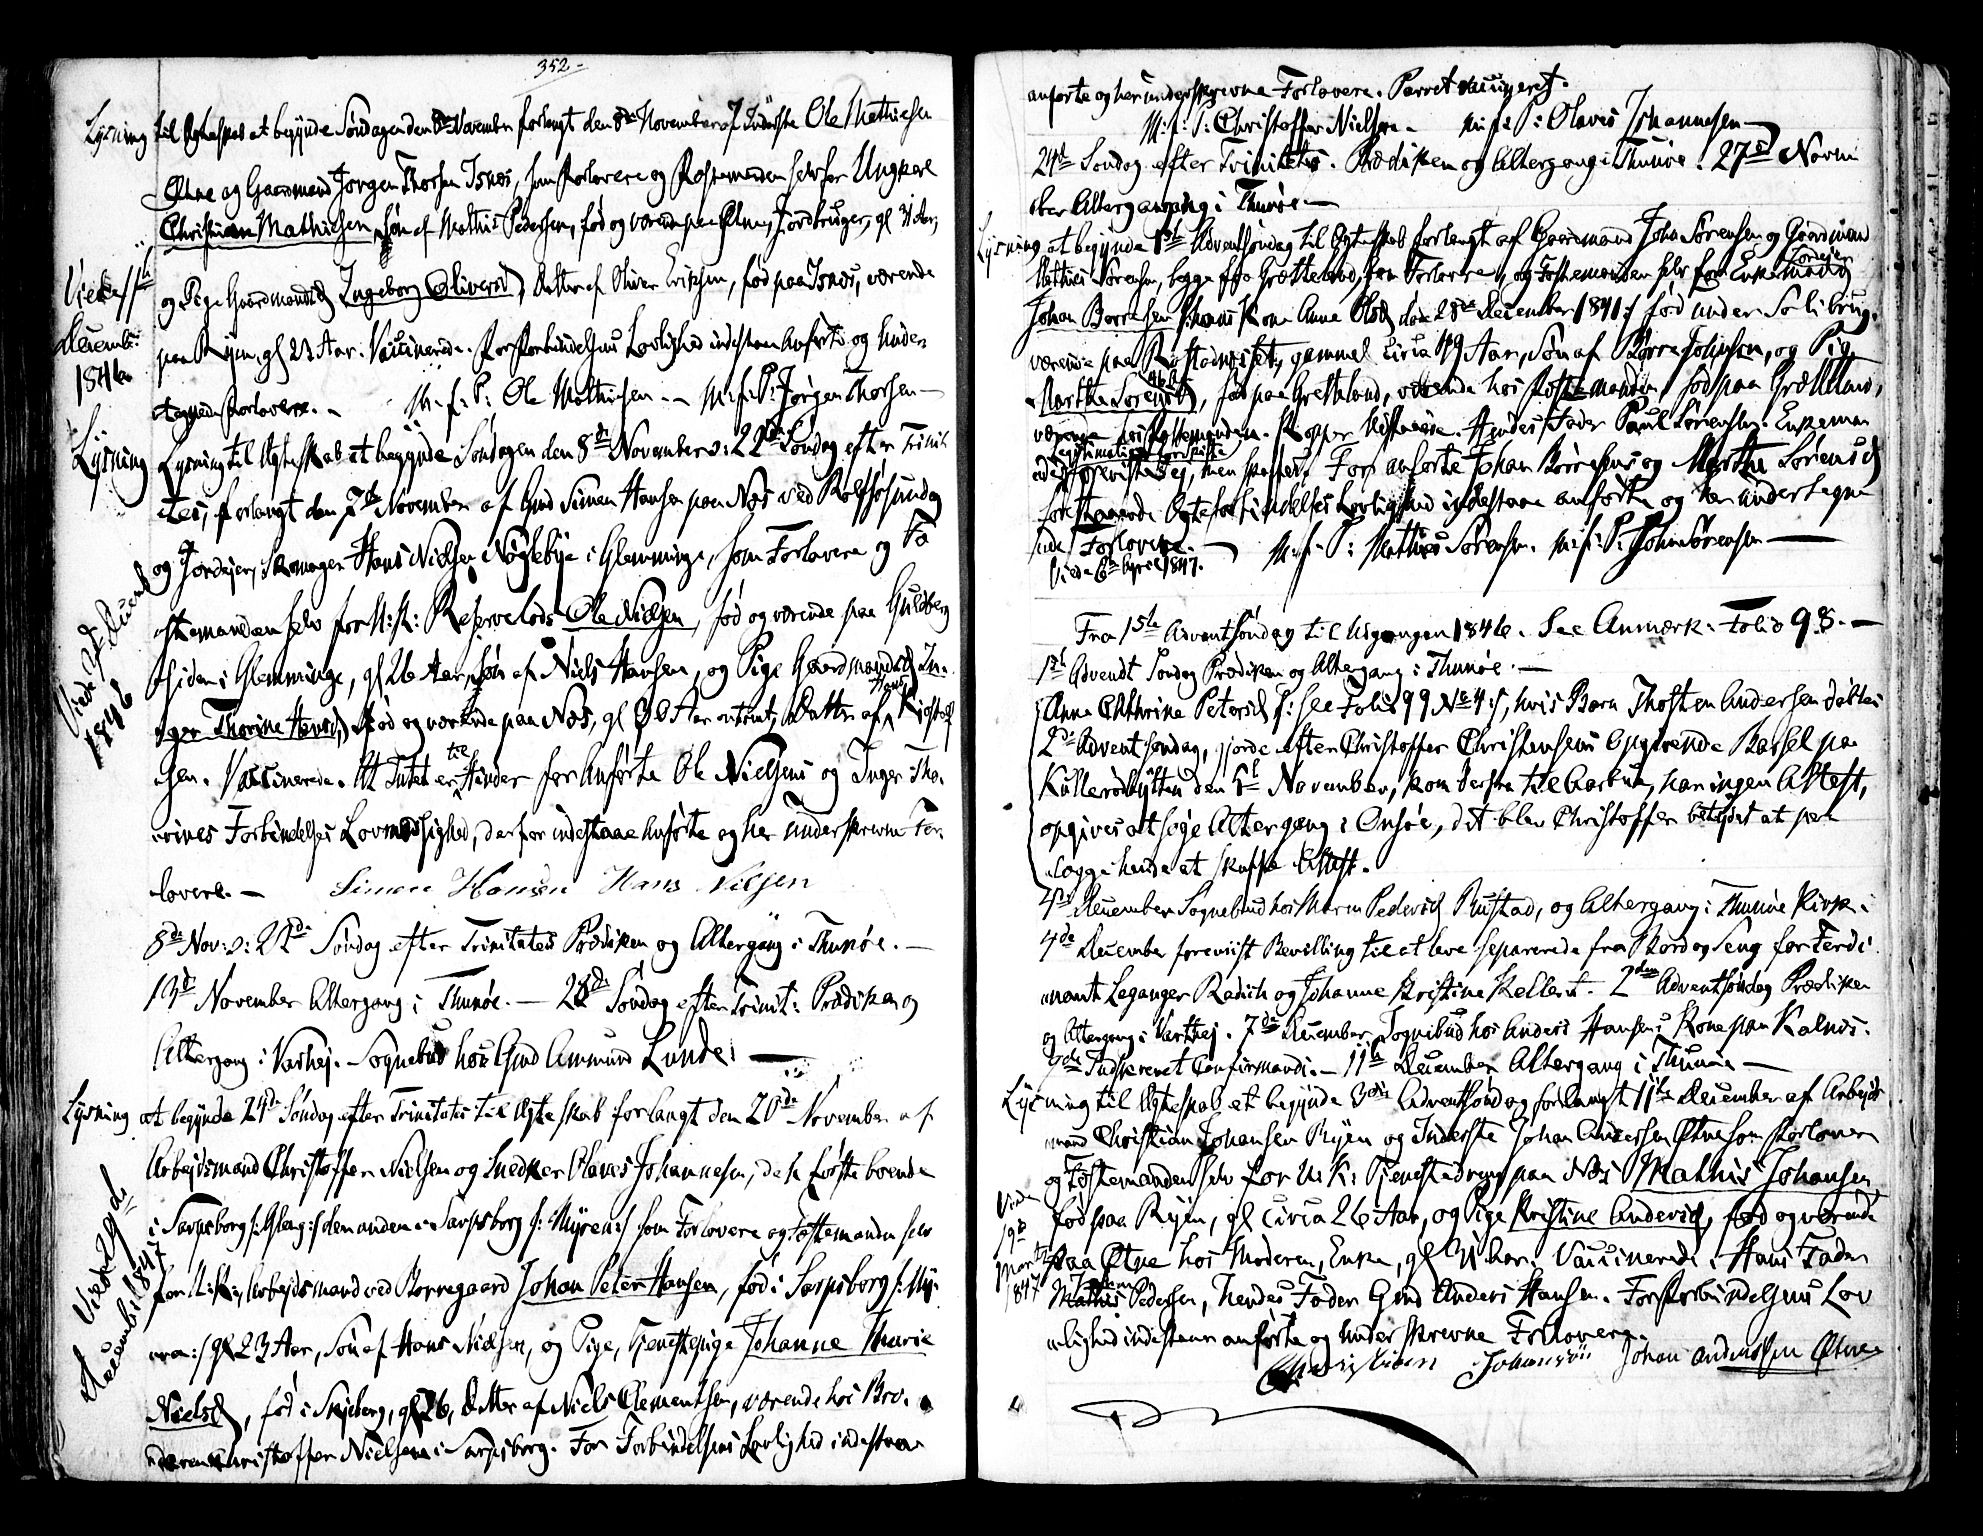 352
Lysning til Egteskab at begynde Søndagen den 8de November forlangt den 8de November af Inderste Ole Mathiesen
Øtne og Gaardmand Jørgen Thorsen Isnæs, som Forlovere og Fæstemanden selv for Ungkarl
Christian Mathiesen, Søn af Mathis Pedersen, fød og værende paa Øtne, Jordbruger, gl 31 Aar,
og Pige Gaardmandsd Ingeborg Oliversd, Datter af Oliver Erichsen, fød paa Isnæs, værende
paa Ryen, gl 23 Aar. Vaccinerede. For Forbindelsens Lovlighed indestaae Anførte og Under
tegnede Forlovere. - M. f. P: Ole Mathiesen - M. f. P. Jørgen Thorsen -
Viede
Decemb:
1846
Lysning
Lysning til Egteskab at begynde Søndagen den 8de November ɔ: 22de Søndag efter Trinit
tes, forlangt den 7de November af Gmd Simen Hansen paa Næs ved Rolfsøsund og
og Jordejer, Skomager Hans Nielsen Nøgleby i Glemminge, som Forlovere og Fæ
stemanden selv for U: K: Reservelods Ole Nielsen, fød og værende paa Guldberg
siden i Glemminge, gl 26 Aar, Søn af Niels Hansen, og Pige Gaardmandsd In-
ger Thorine Hansd, fød og værende paa Næs, gl 30 Aar omtrent, Datter af Hans Kjøstel
sen. Vaccinerede. At Intet er til Hinder for Anførte Ole Nielsens og Inger Tho-
rines Forbindelses Lovmedsighed, derfor indestaae Anførte og her Underskrevne For-
lovere. - Simen Hansen Hans Nilsen
Viede
1846
8de Nov: ɔ: 22de Søndag efter Trinitates Prædiken og Altergang i Thunøe. -
13de November Altergang i Thunøe. - 23de Søndag efter Trinit: Prædiken og
Altergang i Varthej. - Sognebud hos Gmd Ammund Lunde. -
Lysning at begynde 24de Søndag efter Trinitates til Egteskab forlangt den 20de November af
Arbejdsmand Christoffer Nielsen og Snedker Olaves Johannesen, de h første boende
i Sarpsborg /: Glæng :/ den anden i Sarpsborg /: Myren :/ som Forlovere og Fæstemanden selv
for U: K: Arbejdsmand ved Borregaard Johan Peter Hansen, fød i Sarpsborg /: My-
ren :/ gl 23 Aar, Søn af Hans Nielsen, og Pige, Tjenestepige Johanne Marie
Nielsd, fød i Skjeberg, gl 26, Datter af Niels Clementsen, værende hos Bro-
deren Christoffer Nielsen i Sarpsborg. For Forbindelsens Lovlighed indestaae
Viede 29de
December 1847
anførte og her underskrevne Forlovere. Parret vaccineret.
M: f: P: Christoffer Nielsen - M: f: P: Olaves Johannesen -
24de Søndag efter Trinitates. Prædiken og Altergang i Thunøe. 27de Novem
ber Altergang i Thunøe -
Lysning at begynde 1ste Adventsøndag til Egteskab forlangt af Gaardmand John Sørensen og Gaardmand
Mathis Sørensen, begge fra Grætteland, som Forlovere, og Fæstemanden selv for Enkemand
Johan Børresen /: hans Kone Anna Olsd døde 28de December 1841 :/ fød under Solibrug,
værende paa Rostadmosten, gammel circa 49 Aar, Søn af Børre Johnsen, og Pig
Marthe Sørensd, fød paa Gretteland, værende hos Fæstemanden, fød paa Grætteland,
værende hos Fæstemanden. Kopper Hendes Fader Poul Sørensen. Enkeman
ej, men For anførte Johan Børresens og Marthe Sørensd
forestaaende Egteforbindelses Lovlighed indestaae anførte og her undertegne
nede Forlovere. - M: f: P: Mathies Sørensen. M: f: P: John Sørensen -
Viede 6te April 1847.
Fra 1ste Adventsøndag til Udgangen 1846. See Anmærk. Folio 98. -
1ste Advendt Søndag Prædiken og Altergang i Thunøe. -
Anna Cathrine Petersd /: see Folio 99 No 4 :/, hvis Barn Thosten Andersen døbtes
2de Adventsøndag, gjorde efter Christoffer Christensens Opgivende Barsel paa
Kallerødhytten den 6te November, kom derfra til Aarbue, har ingen Attest,
opgives at søge Altergang i Onsøe, dit blev Christoffer betydet at paa
lægge hende at skaffe Attest.
4de December Sognebud hos Maren Pedersd Rustad, og Altergang i Thunøe Kirke.
4de December foreviist Bevilling til at leve separerede fra Bord og Seng for Ferdi
nandt Leganger Radich og Johanne Kristine Kellert. 2den Adventsøndag Prædiken
og Altergang i Varthej. 7de December Sognebud hos Anders Hansens Kone paa Kalnæs.
9de Indskrevet Confirmandi. - 11te December Altergang i Thunøe -
Lysning til Egteskab at begynde 3die Adventsøndag forlangt 11te December af Arbejds
mand Christian Johansen Ryen og Inderste Johan Andersen Øtne som Forlovere
og Fæstemanden selv for U: K: Tjenestedreng paa Næs Mathis Johansen
fød paa Ryen, gl circa 26 Aar, og Pige Kristine Andersd, fød og værende
paa Øtne hos Moderen, Enke, gl 31 Aar. Vaccinerede. Hans Fader
Johan Pedersen, hendes Fader Gmd Anders Hansen. For Forbindelsens Lov
lighed indestaae anførte og Underskrevne Forlovere.
Christian Johansøn Johan Andersen Øtne
Viede
19de
Marts
1847